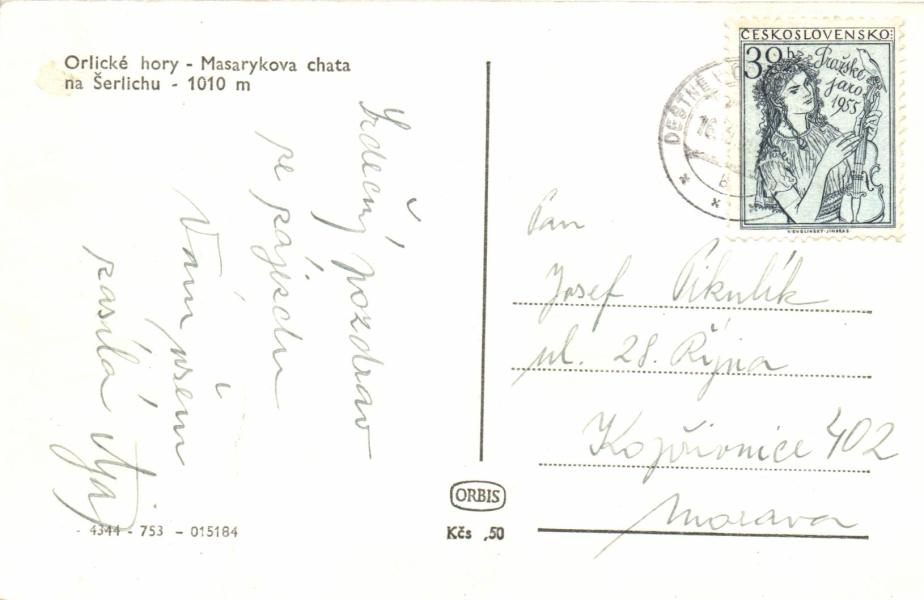 Orlické hory - Masarykova chata
na Šerlichu - 1010 m
Srdečný pozdrav
ze zájezdu
Vám všem
zasílá
ČESKOSLOVENSKO
30h
Pražské
jaro
1955
DEŠTNÉ V O
Pan
Josef Pikulík
ul. 28. Října
Kopřivnice 402
Morava
ORBIS
Kčs ,50
- 4344 - 753 - 015184